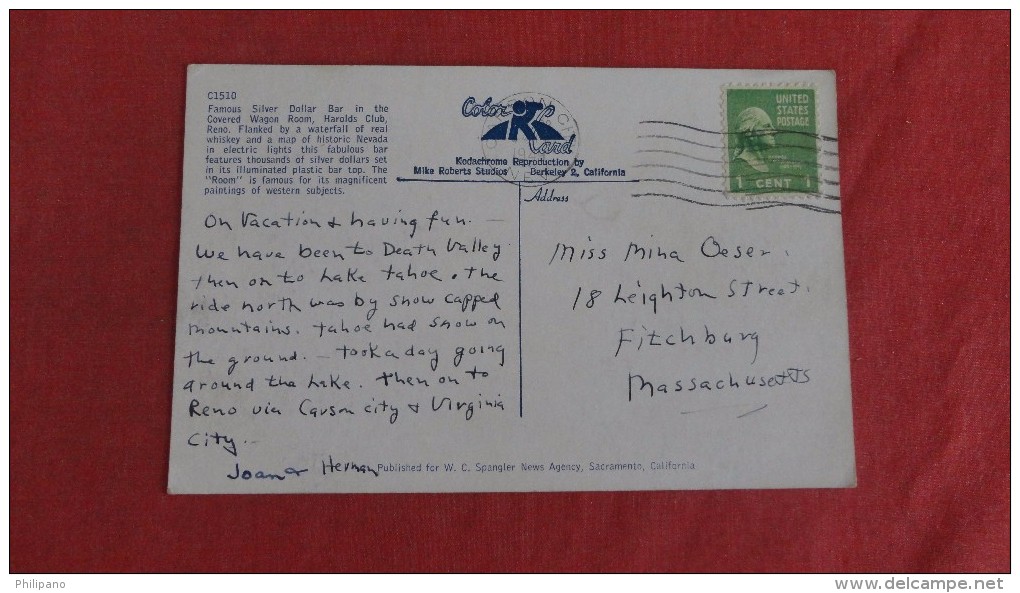 C1510
Famous Silver Dollar Bar in the
Covered Wagon Room, Harolds Club,
Reno. Flanked by a waterfall of real
whiskey and a map of historic Nevada
in electric lights this fabulous bar
features thousands of silver dollars set
in its illuminated plastic bar top. The
"Room" is famous for its magnificent
paintings of western subjects.
Color Card
Kodachrome Reproduction by
Mike Roberts Studios Berkeley 2, California
UNITED
STATES
POSTAGE
1 CENT 1
Address
On Vacation & having fun. —
We have been to Death Valley
then on to Lake Tahoe. The
ride north was by snow capped
mountains. Tahoe had snow on
the ground. — took a day going
around the Lake. Then on to
Reno via Carson City & Virginia
City. —
Joan & Herman
Miss Mina Oeser.
18 Leighton Street.
Fitchburg
Massachusetts
Published for W. C. Spangler News Agency, Sacramento, California
Philipano
www.delcampe.net